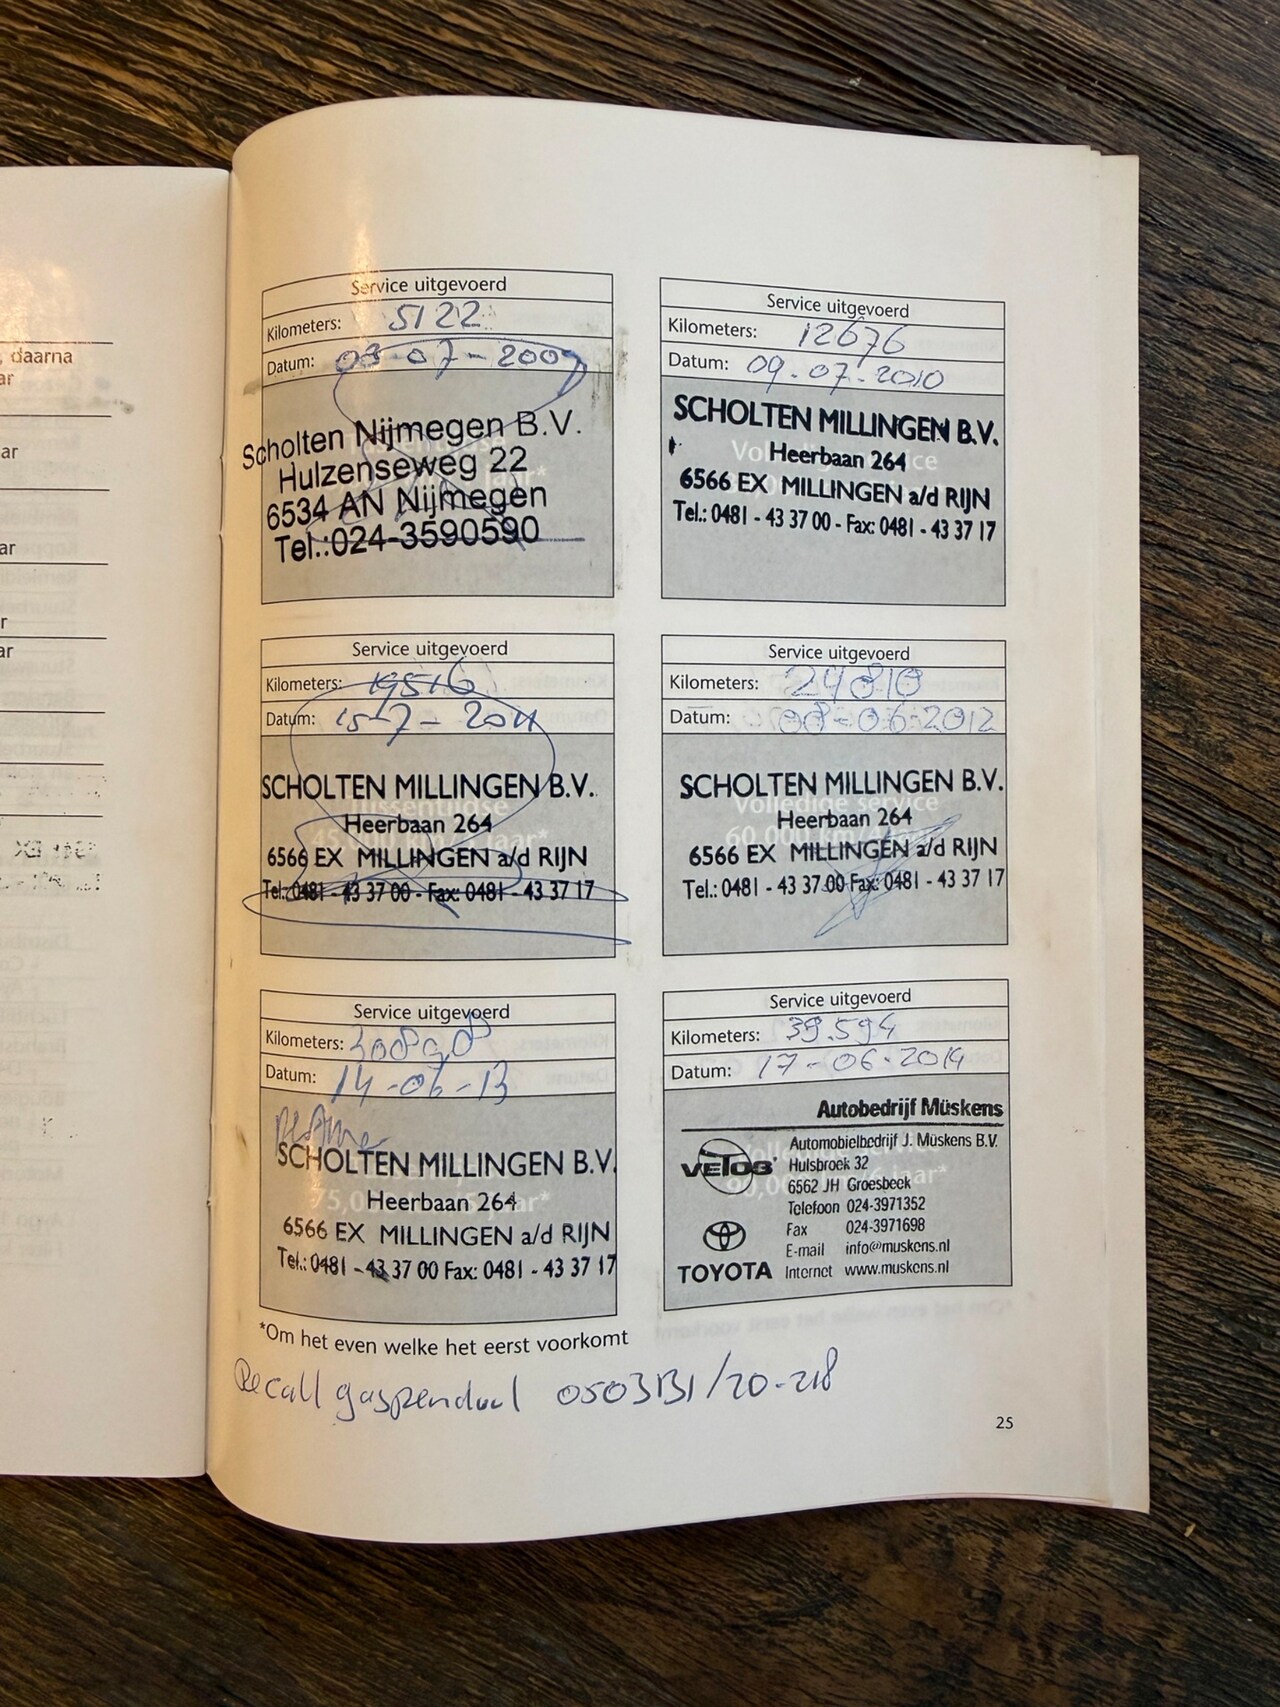 daarna
ar
ar
ar
r
ar
Service uitgevoerd
Kilometers: 5122
Datum: 03-07-2009
Scholten Nijmegen B.V.
Hulzenseweg 22
6534 AN Nijmegen
Tel.:024-3590590
Service uitgevoerd
Kilometers: 12676
Datum: 09.07.2010
Volledige service
SCHOLTEN MILLINGEN B.V.
Heerbaan 264
6566 EX MILLINGEN a/d RIJN
Tel.: 0481 - 43 37 00 - Fax: 0481 - 43 37 17
Service uitgevoerd
Kilometers: 19516
Datum: 15-7-2011
SCHOLTEN MILLINGEN B.V.
Tussentijdse
Heerbaan 264
45.000 km/3 jaar*
6566 EX MILLINGEN a/d RIJN
Tel.: 0481 - 43 37 00 - Fax: 0481 - 43 37 17
Service uitgevoerd
Kilometers: 24810
Datum: 08-06-2012
SCHOLTEN MILLINGEN B.V.
Volledige service
Heerbaan 264
60.000 km/4 jaar*
6566 EX MILLINGEN a/d RIJN
Tel.: 0481 - 43 37 00 Fax: 0481 - 43 37 17
Service uitgevoerd
Kilometers:
Datum: 14-06-13
SCHOLTEN MILLINGEN B.V.
Heerbaan 264
75,000 jaar*
6566 EX MILLINGEN a/d RIJN
Tel.: 0481 - 43 37 00 Fax: 0481 - 43 37 17
Service uitgevoerd
Kilometers: 39.594
Datum: 17-06-2014
Autobedrijf Müskens
Automobielbedrijf J. Müskens B.V.
Hulsbroek 32
6562 JH Groesbeek
Telefoon 024-3971352
Fax 024-3971698
E-mail info@muskens.nl
Internet www.muskens.nl
VETOS
TOYOTA
Volledige service
90,000 km/6 jaar*
*Om het even welke het eerst voorkomt
Recall gaspendaal 0503B1/20-218
25